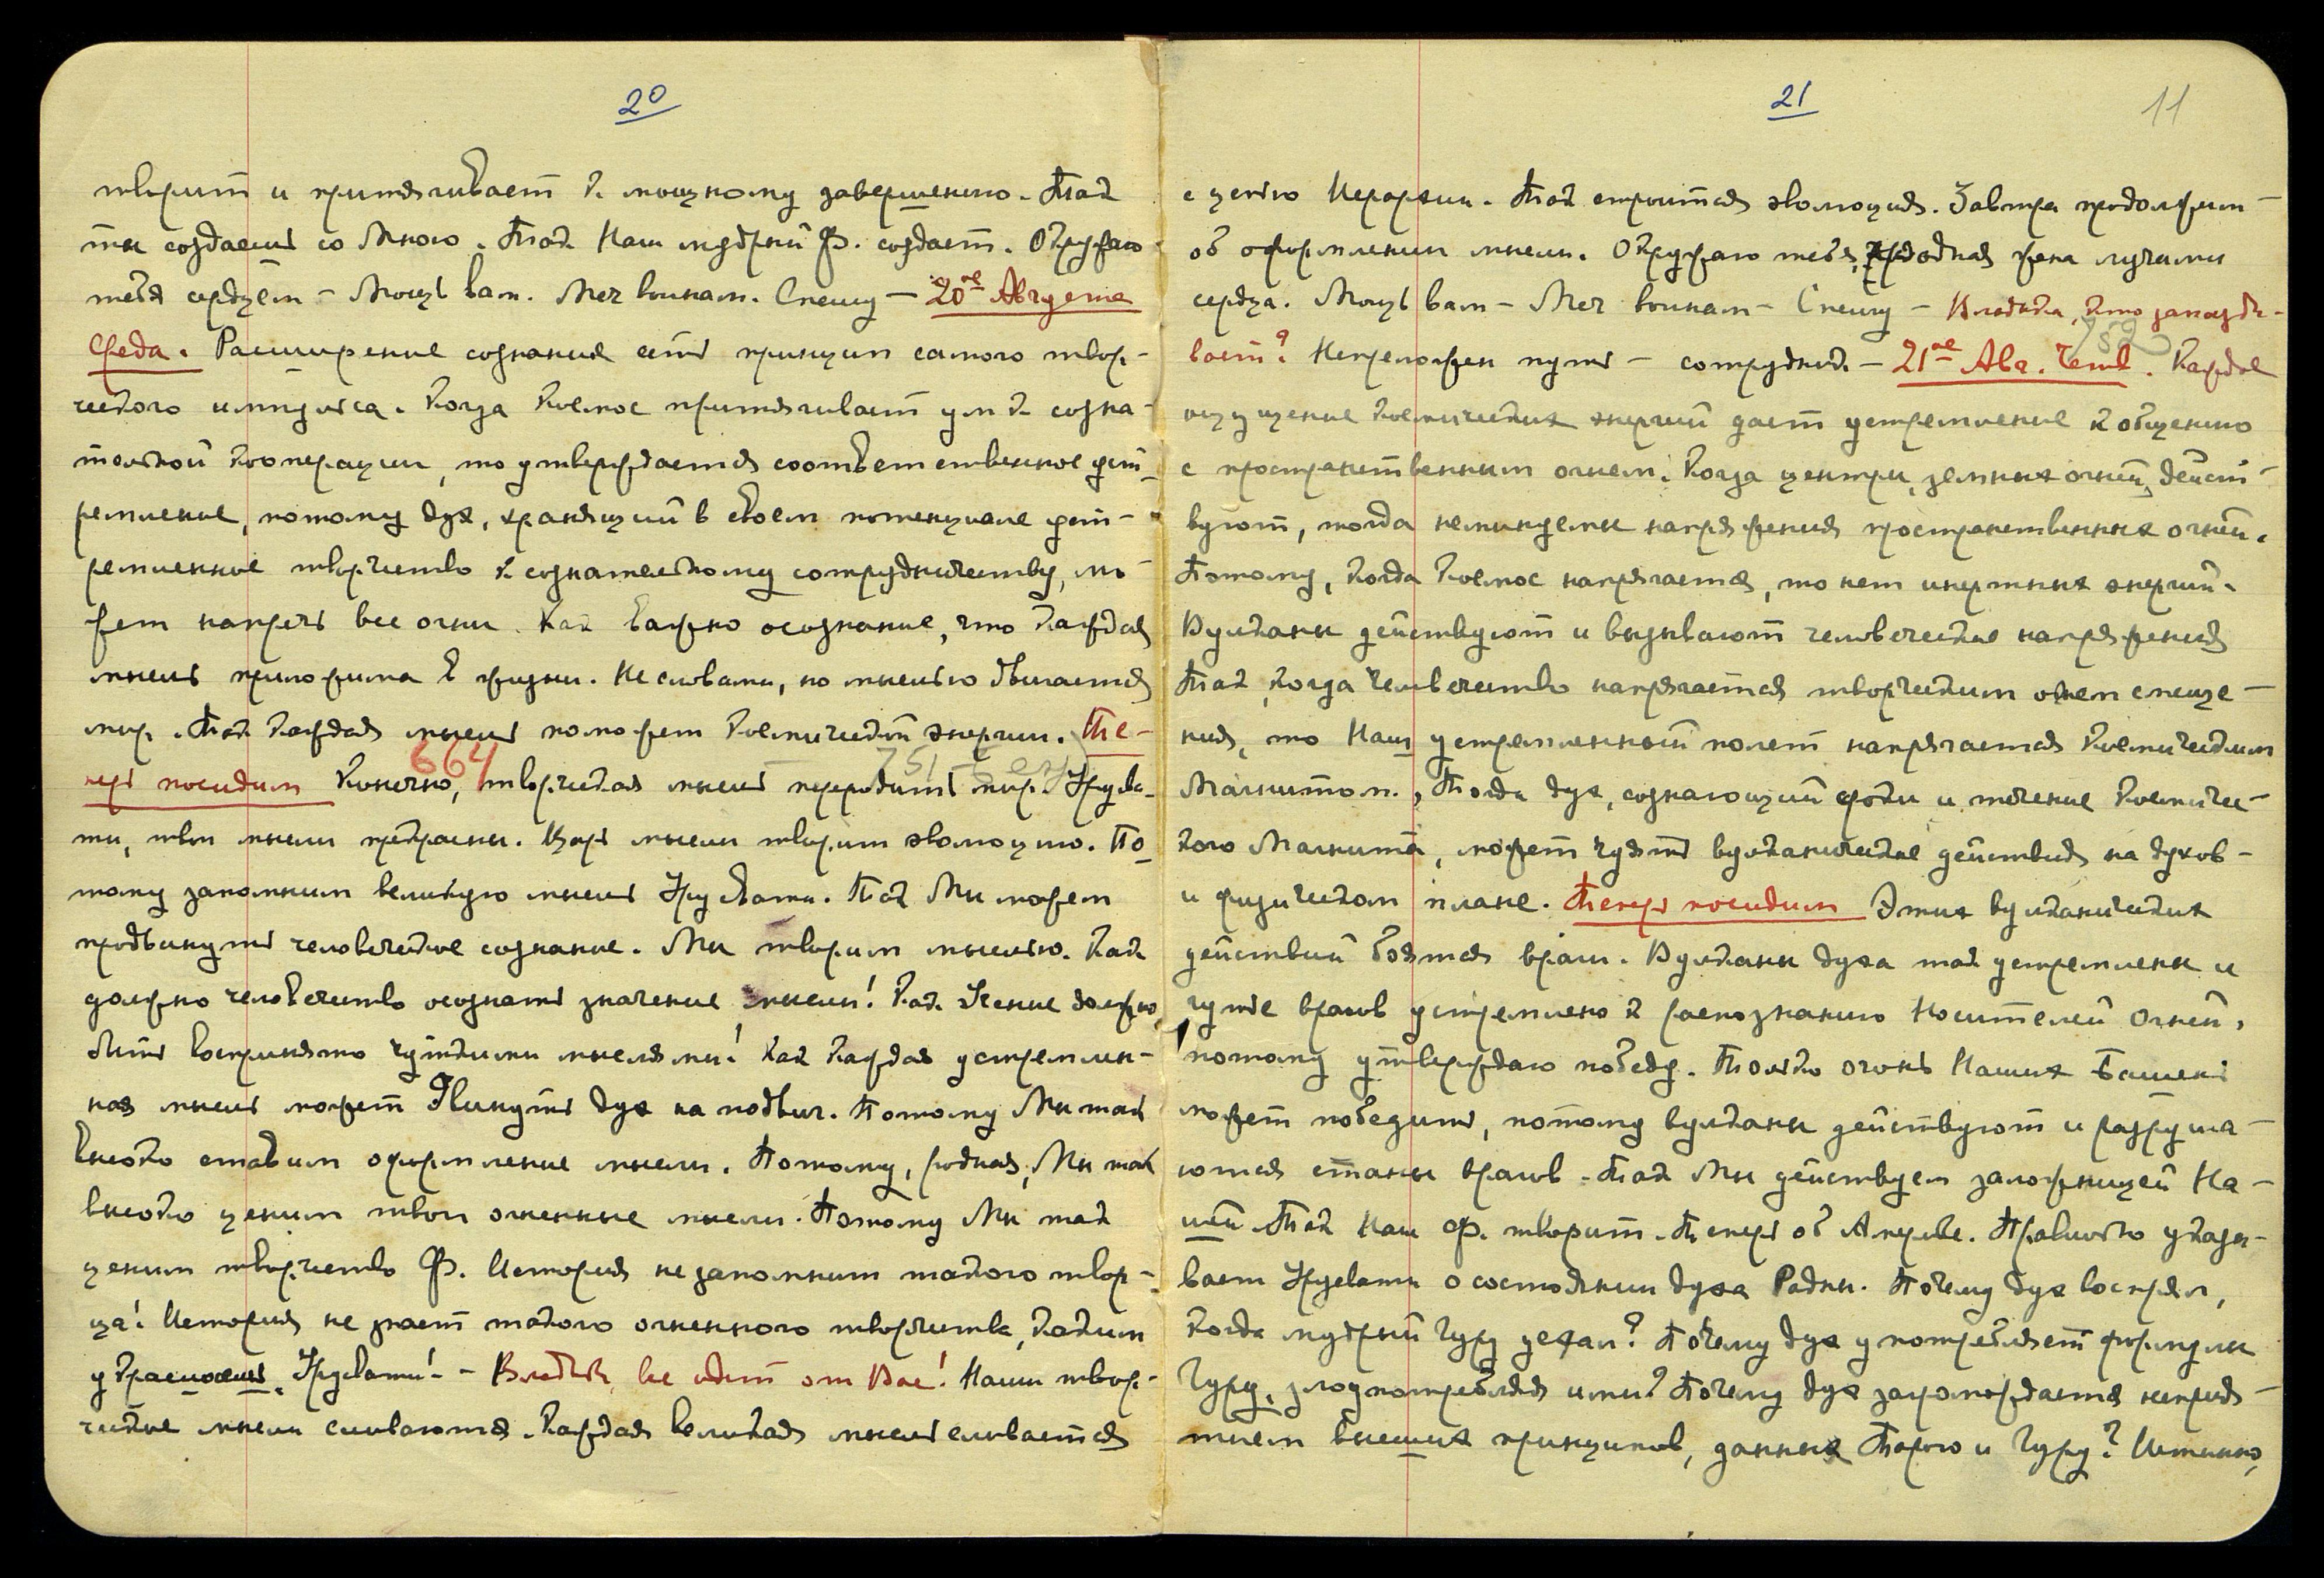 20
творит и притягивает к мощному завершению. Так
ты создаешь со Мною. Так Наш мудрый Ф. создает. Окружаю
тебя сердцем – Мощь вам. Меч воинам. Спешу – 20ое Августа
Среда. Расширение сознания есть принцип самого твор-
ческого импульса. Когда Космос притягивает ум к созна-
тельной кооперации, то утверждается соответственное уст-
ремление, потому дух, хранящий в своем потенциале уст-
ремленное творчество к сознательному сотрудничеству, мо-
жет напречь все огни. Как важно осознание, что каждая
мысль приложима в жизни. Не словами, но мыслью двигается
мир. Так каждая мысль поможет космической энергии. Те-
перь посидим Конечно, творческая мысль переродит мир. Урусва-
664 751
ти, твои мысли прекрасны. Царь мысли творит эволюцию. По-
тому запомним великую мысль Урусвати. Так Мы можем
продвинуть человеческое сознание. Мы творим мыслью. Как
должно человечество осознать значение мысли! Как Учение должно
быть воспринято чуткими мыслями! Как каждая устремлен-
ная мысль может двинуть дух на подвиг. Потому Мы так
высоко ставим оформление мысли. Потому, родная, Мы так
высоко ценим твои огненные мысли. Потому Мы так
ценим творчество Ф. История не запомнит такого твор-
ца! История не знает такого огненного творчества, каким
украшаешь, Урусвати! – Владыка, все идет от Вас! Наши твор-
ческие мысли сливаются. Каждая великая мысль сливается
21
11
с цепью Иерархии. Так строится эволюция. Завтра продолжим
об оформлении мысли. Окружаю тебя, родная жена лучами
сердца. Мощь вам – Меч воинам – Спешу – Владыка, кто запазды-
вает? Непреложен путь – сотрудник – 21ое Авг. Четв. Каждое
752
ощущение космических энергий дает устремление к общению
с пространственным огнем. Когда центры, земных огней, дейст-
вуют, тогда неминуемы напряжения пространственных огней.
Потому, когда Космос напрягается, то нет инертных энергий.
Вулканы действуют и вызывают человеческие напряжения
Так, когда человечество напрягается творческим огнем смеще-
ния, то Наш устремленный полет напрягается космическим
Магнитом. Тогда дух, сознающий сроки и течение Космичес-
кого Магнита, может чуять вулканические действия на духов-
и физическом плане. Теперь посидим Этих вулканических
действий боятся враги. Вулканы духа так устремлены и
чутье врагов устремлено к распознанию Носителей Огней,
потому утверждаю победу. Только огонь Наших Башень
может победить, потому вулканы действуют и разруша-
ются станы врагов. Так Мы действуем заложницей На-
шей. Так Наш Ф. творит. Теперь об Америке. Правильно указы-
вает Урусвати о состоянии духа Радны. Почему дух воспрял,
когда мудрый Гуру уехал? Почему дух употребляет формулы
Гуру, злоупотребляя ими? Почему дух загромождается неприя-
тием высших принципов, данных Тарою и Гуру? Истинно,